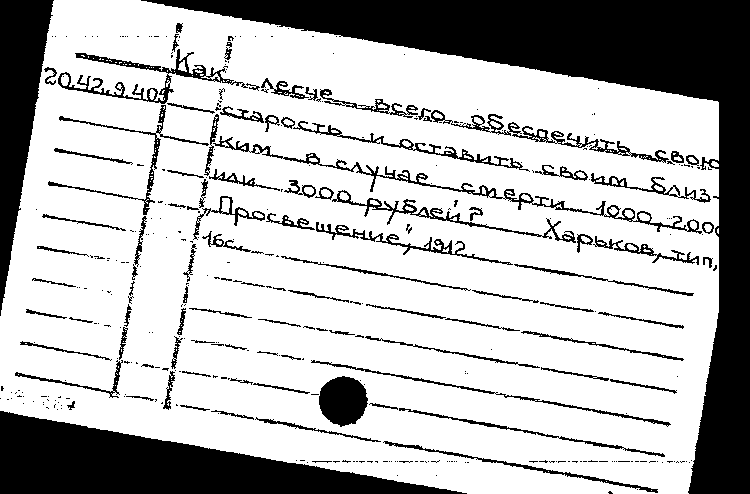 Как легче всего обеспечить свою
20.42.9.405
старость и оставить своим близ-
ким в случае смерти 1000, 2000
или 3000 рублей? Харьков, тип,
"Просвещение", 1912.
16с.